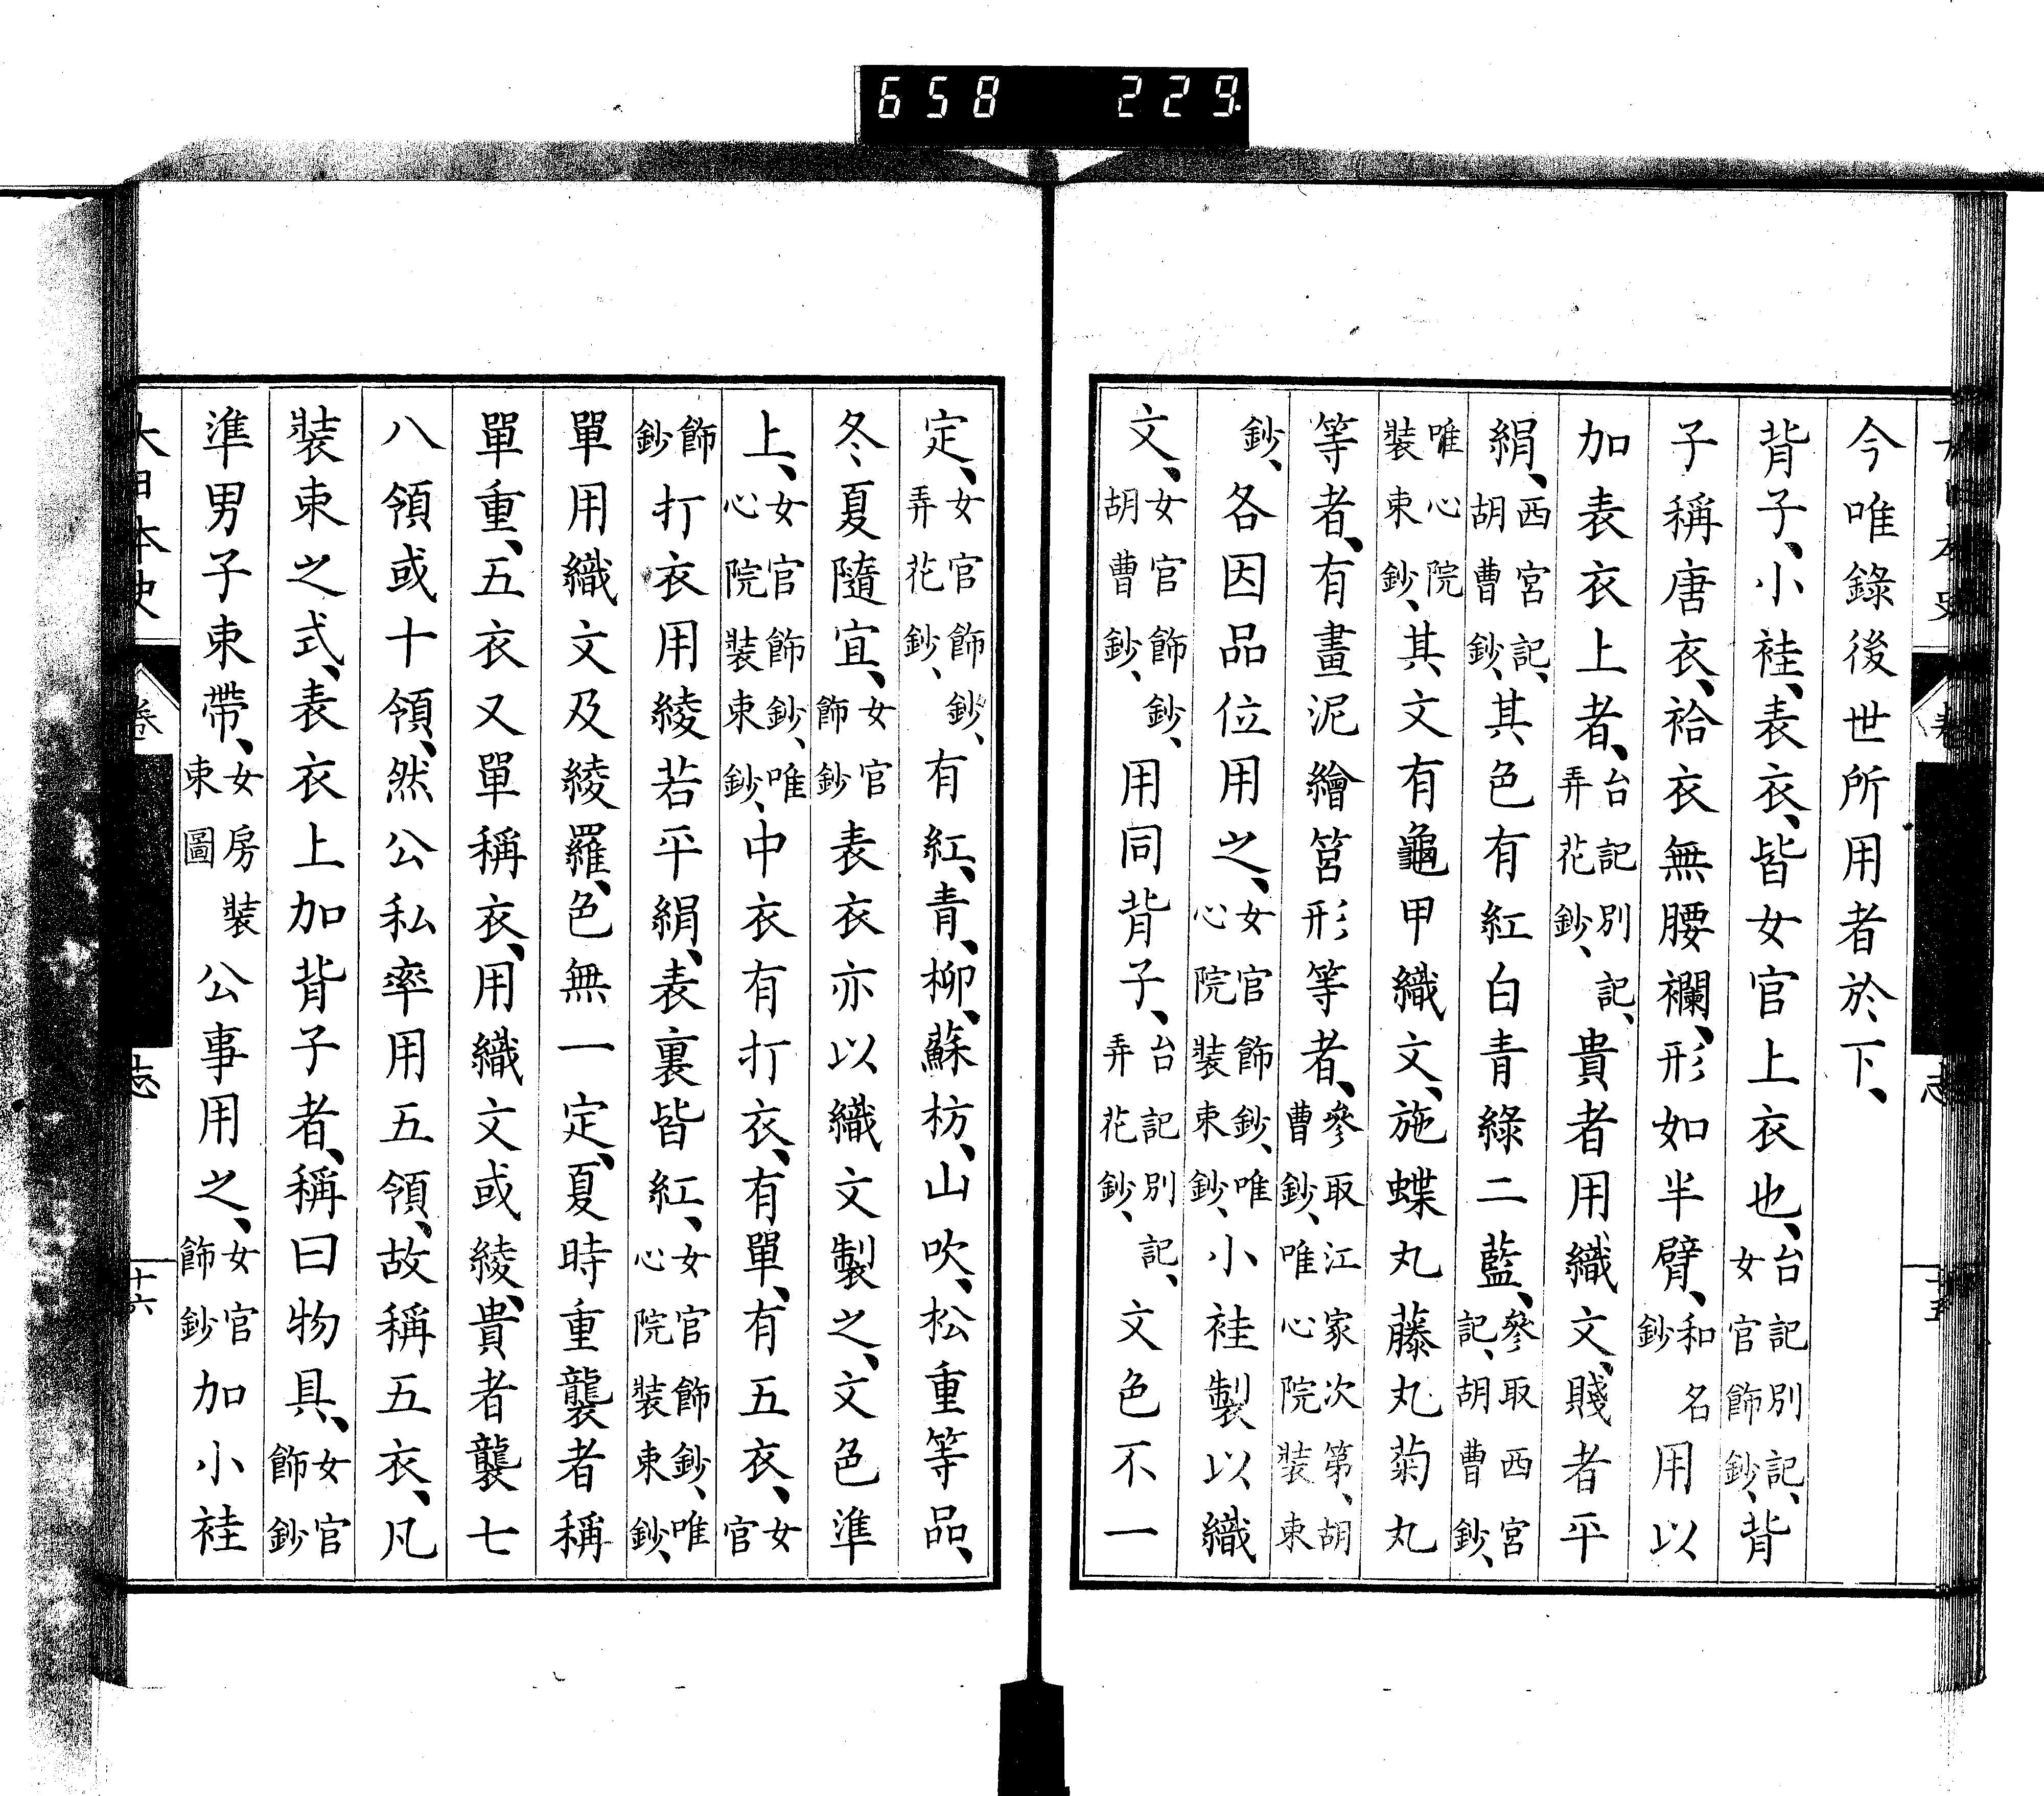 658 229
今唯錄後世所用者於下、
背子、小袿、表衣、皆女官上衣也、台記別記、女官飾鈔、背
子稱唐衣、袷衣無腰襴、形如半臂、和名鈔用以
加表衣上者、台記別記、弄花鈔、貴者用織文、賤者平
絹、西宮記、胡曹鈔、其色有紅白青綠二藍、參取西宮記、胡曹鈔、
唯心院裝束鈔、其文有龜甲織文、施蝶丸藤丸菊丸
等者、有畫泥繪筥形等者、參取江家次第、胡曹鈔、唯心院裝束
鈔、各因品位用之、女官飾鈔、唯心院裝束鈔、小袿製以織
文、女官飾鈔、胡曹鈔、用同背子、台記別記、弄花鈔、文色不一
定、女官飾鈔、弄花鈔、有紅、青、柳、蘇枋、山吹、松重等品、
冬夏隨宜、女官飾鈔表衣亦以織文製之、文色準
上、女官飾鈔、唯心院裝束鈔、中衣有打衣、有單、有五衣、女官
飾鈔打衣用綾若平絹、表裏皆紅、女官飾鈔、唯心院裝束鈔、
單用織文及綾羅、色無一定、夏時重襲者稱
單重、五衣又單稱衣、用織文或綾、貴者襲七
八領或十領、然公私率用五領、故稱五衣、凡
裝束之式、表衣上加背子者、稱曰物具、女官飾鈔
準男子束帶、女房裝束圖公事用之、女官飾鈔加小袿
大日本史 卷 志 十六